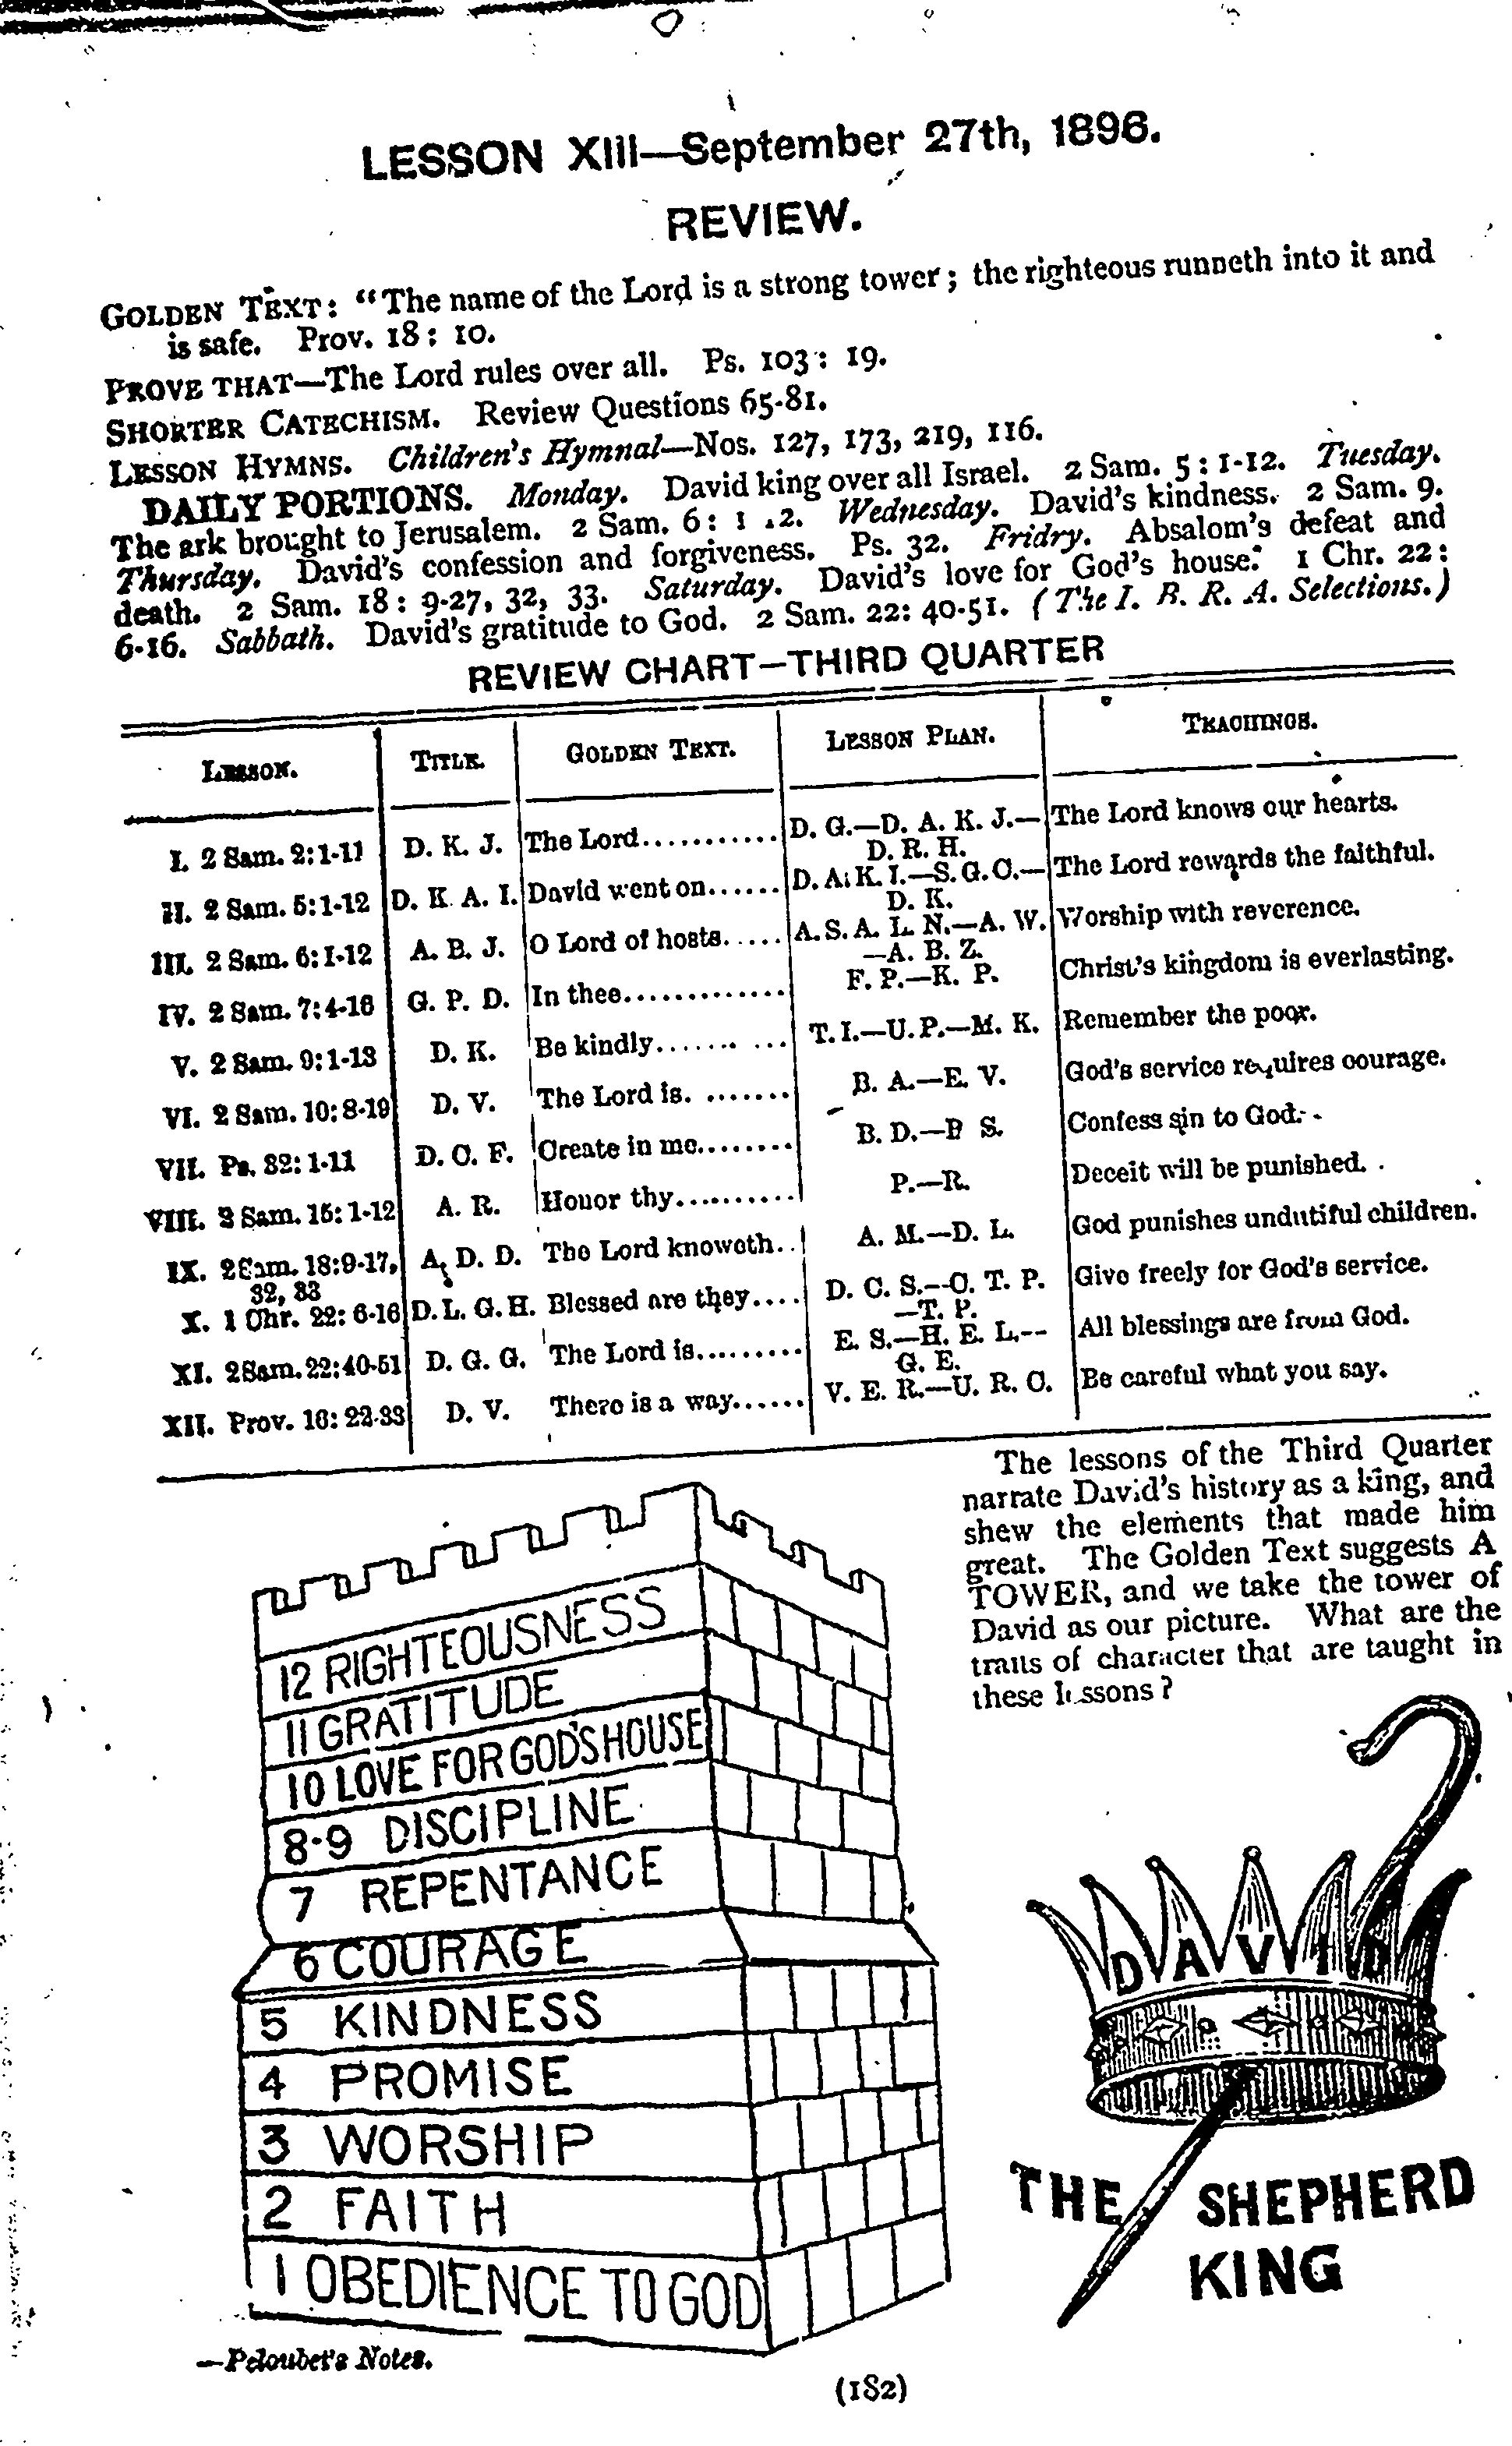 LESSON XIII—September 27th, 1896.
REVIEW.
GOLDEN TEXT: "The name of the Lord is a strong tower; the righteous runneth into it and
is safe. Prov. 18: 10.
PROVE THAT—The Lord rules over all. Ps. 103: 19.
SHORTER CATECHISM. Review Questions 65-81.
LESSON HYMNS. Children's Hymnal—Nos. 127, 173, 219, 116.
DAILY PORTIONS. Monday. David king over all Israel. 2 Sam. 5: 1-12. Tuesday.
The ark brought to Jerusalem. 2 Sam. 6: 1 .2. Wednesday. David's kindness. 2 Sam. 9.
Thursday. David's confession and forgiveness. Ps. 32. Fridry. Absalom's defeat and
death. 2 Sam. 18: 9-27, 32, 33. Saturday. David's love for God's house. 1 Chr. 22:
6-16. Sabbath. David's gratitude to God. 2 Sam. 22: 40-51. (The I. B. R. A. Selections.)
REVIEW CHART—THIRD QUARTER
LESSON. TITLE. GOLDEN TEXT. LESSON PLAN. TEACHINGS.
I. 2 Sam. 2:1-11 D. K. J. The Lord........... D. G.—D. A. K. J.— The Lord knows our hearts.
D. R. H.
II. 2 Sam. 5:1-12 D. K. A. I. David went on...... D. A. K. I.—S. G. C.— The Lord rewards the faithful.
D. K.
III. 2 Sam. 6:1-12 A. B. J. O Lord of hosts..... A. S. A. L. N.—A. W. Worship with reverence.
—A. B. Z.
IV. 2 Sam. 7:4-16 G. P. D. In thee............. F. P.—K. P. Christ's kingdom is everlasting.
V. 2 Sam. 9:1-13 D. K. Be kindly....... ... T. I.—U. P.—M. K. Remember the poor.
VI. 2 Sam. 10:8-19 D. V. The Lord is. ....... B. A.—E. V. God's service requires courage.
VII. Ps. 32:1-11 D. C. F. Create in me........ B. D.—B S. Confess sin to God.
VIII. 2 Sam. 15:1-12 A. R. Honor thy.......... P.—R. Deceit will be punished.
IX. 2 Sam. 18:9-17, A. D. D. The Lord knoweth.. A. M.—D. L. God punishes undutiful children.
32, 33
X. 1 Chr. 22: 6-16 D. L. G. H. Blessed are they.... D. C. S.—O. T. P. Give freely for God's service.
—T. P.
XI. 2 Sam. 22:40-51 D. G. G. The Lord is......... E. S.—H. E. L.-- All blessings are from God.
G. E.
XII. Prov. 16: 22-33 D. V. There is a way...... V. E. R.—U. R. C. Be careful what you say.
The lessons of the Third Quarter
narrate David's history as a king, and
shew the elements that made him
great. The Golden Text suggests A
TOWER, and we take the tower of
David as our picture. What are the
traits of character that are taught in
these lessons?
12 RIGHTEOUSNESS
11 GRATITUDE
10 LOVE FOR GOD'S HOUSE
8-9 DISCIPLINE
7 REPENTANCE
6 COURAGE
5 KINDNESS
4 PROMISE
3 WORSHIP
2 FAITH
1 OBEDIENCE TO GOD
DAVID
THE SHEPHERD
KING
—Peloubet's Notes.
(182)